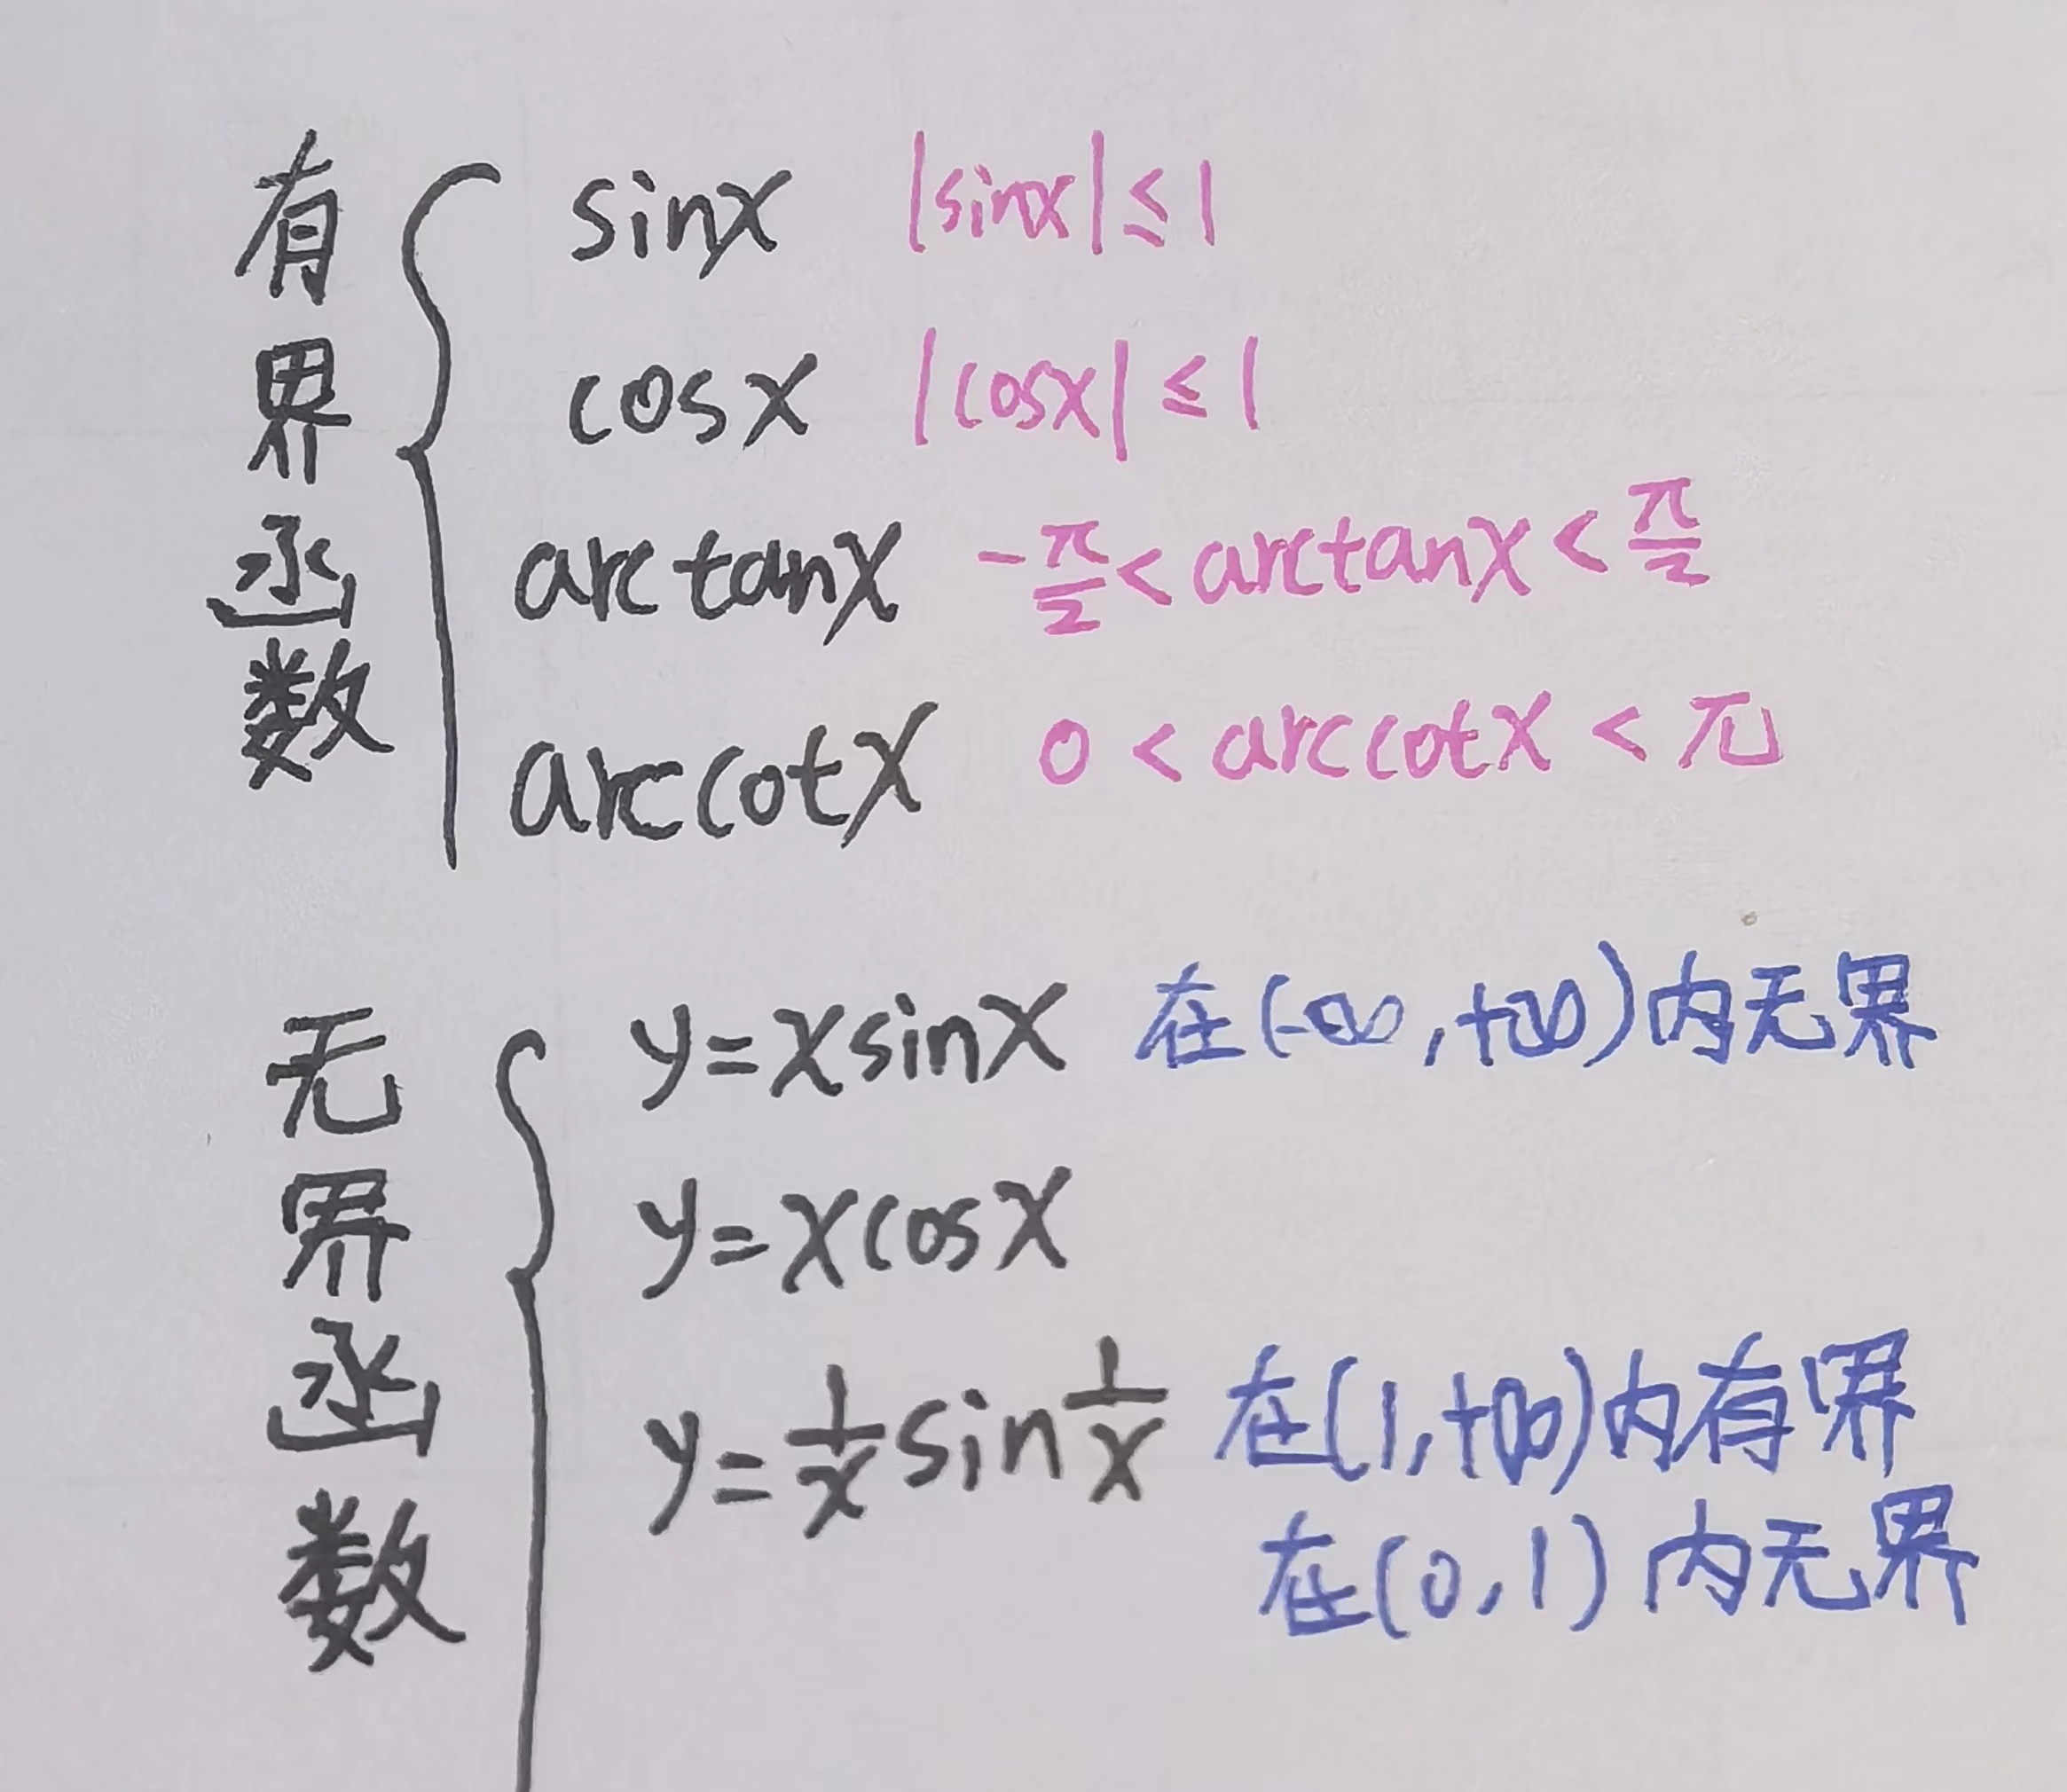 有界函数
sinx |sinx|≤1
cosx |cosx|≤1
arctanx -π/2<arctanx<π/2
arccotx 0<arccotx<π
无界函数
y=xsinx 在(-∞,+∞)内无界
y=xcosx
y=1/x sin 1/x 在(1,+∞)内有界
在(0,1)内无界